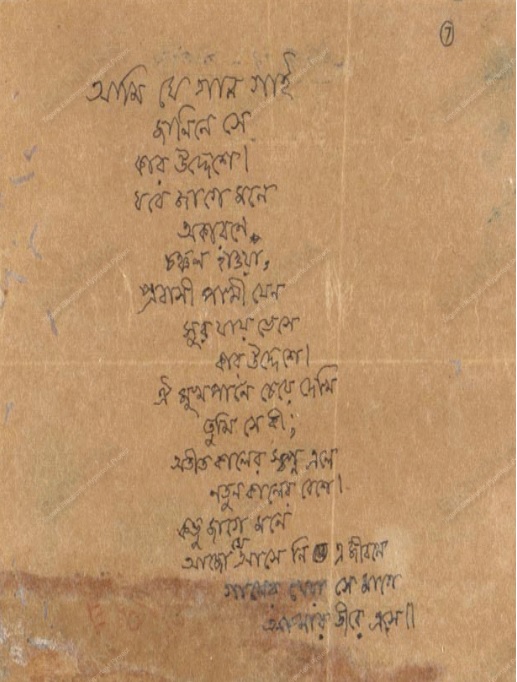 ৭
আমি যে গান গাই
জানিনে সে
কার উদ্দেশে।
যবে জাগে মনে
অকারণে
চঞ্চল হাওয়া,
প্রবাসী পাখী যেন
সুর যায় ভেসে
কার উদ্দেশে।
ঐ মুখপানে চেয়ে দেখি
তুমি সে কী;
অতীত কালের স্বপ্ন এলে
নতুন কালের বেশে।
কভু জাগে মনে
আজো যে আসে নি এ জীবনে
গানের খেয়া সে মাগে
আমার তীরে এসে॥